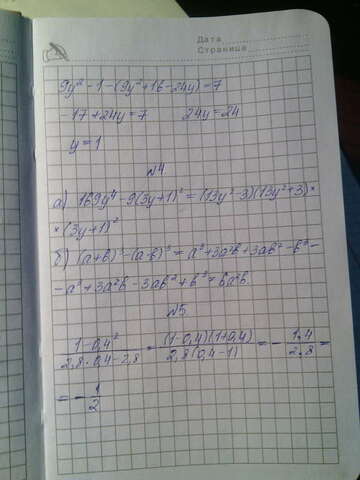 Дата
Страница
9y² - 1 - (9y² + 16 - 24y) = 7
-17 + 24y = 7 24y = 24
y = 1
№4
а) 169y⁴ - 9(3y+1)² = (13y² - 3)(13y² + 3) ×
× (3y+1)²
б) (a+b)³ - (a-b)³ = a³ + 3a²b + 3ab² - b³ -
- a³ + 3a²b - 3ab² + b³ = 6a²b.
№5
(1-0,4²)/(2,8·0,4-2,8) = ((1-0,4)(1+0,4))/(2,8(0,4-1)) = - 1,4/2,8 =
= - 1/2